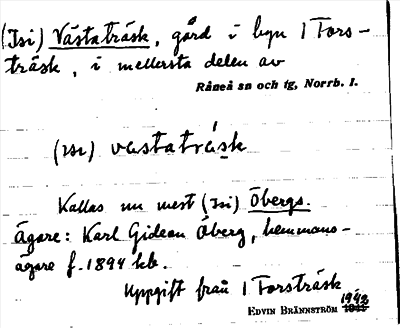 (Isi) Västaträsk, gård i byn 1 Fors-
träsk, i mellersta delen av
Råneå sn och tg, Norrb. l.
(ısı) vastatrásk
Kallas nu mest (Isi) Öbergs.
Ägare: Karl Gideon Öberg, hemmans-
ägare f. 1894 kb.
Uppgift från 1 Forsträsk
Edvin Brännström 1942